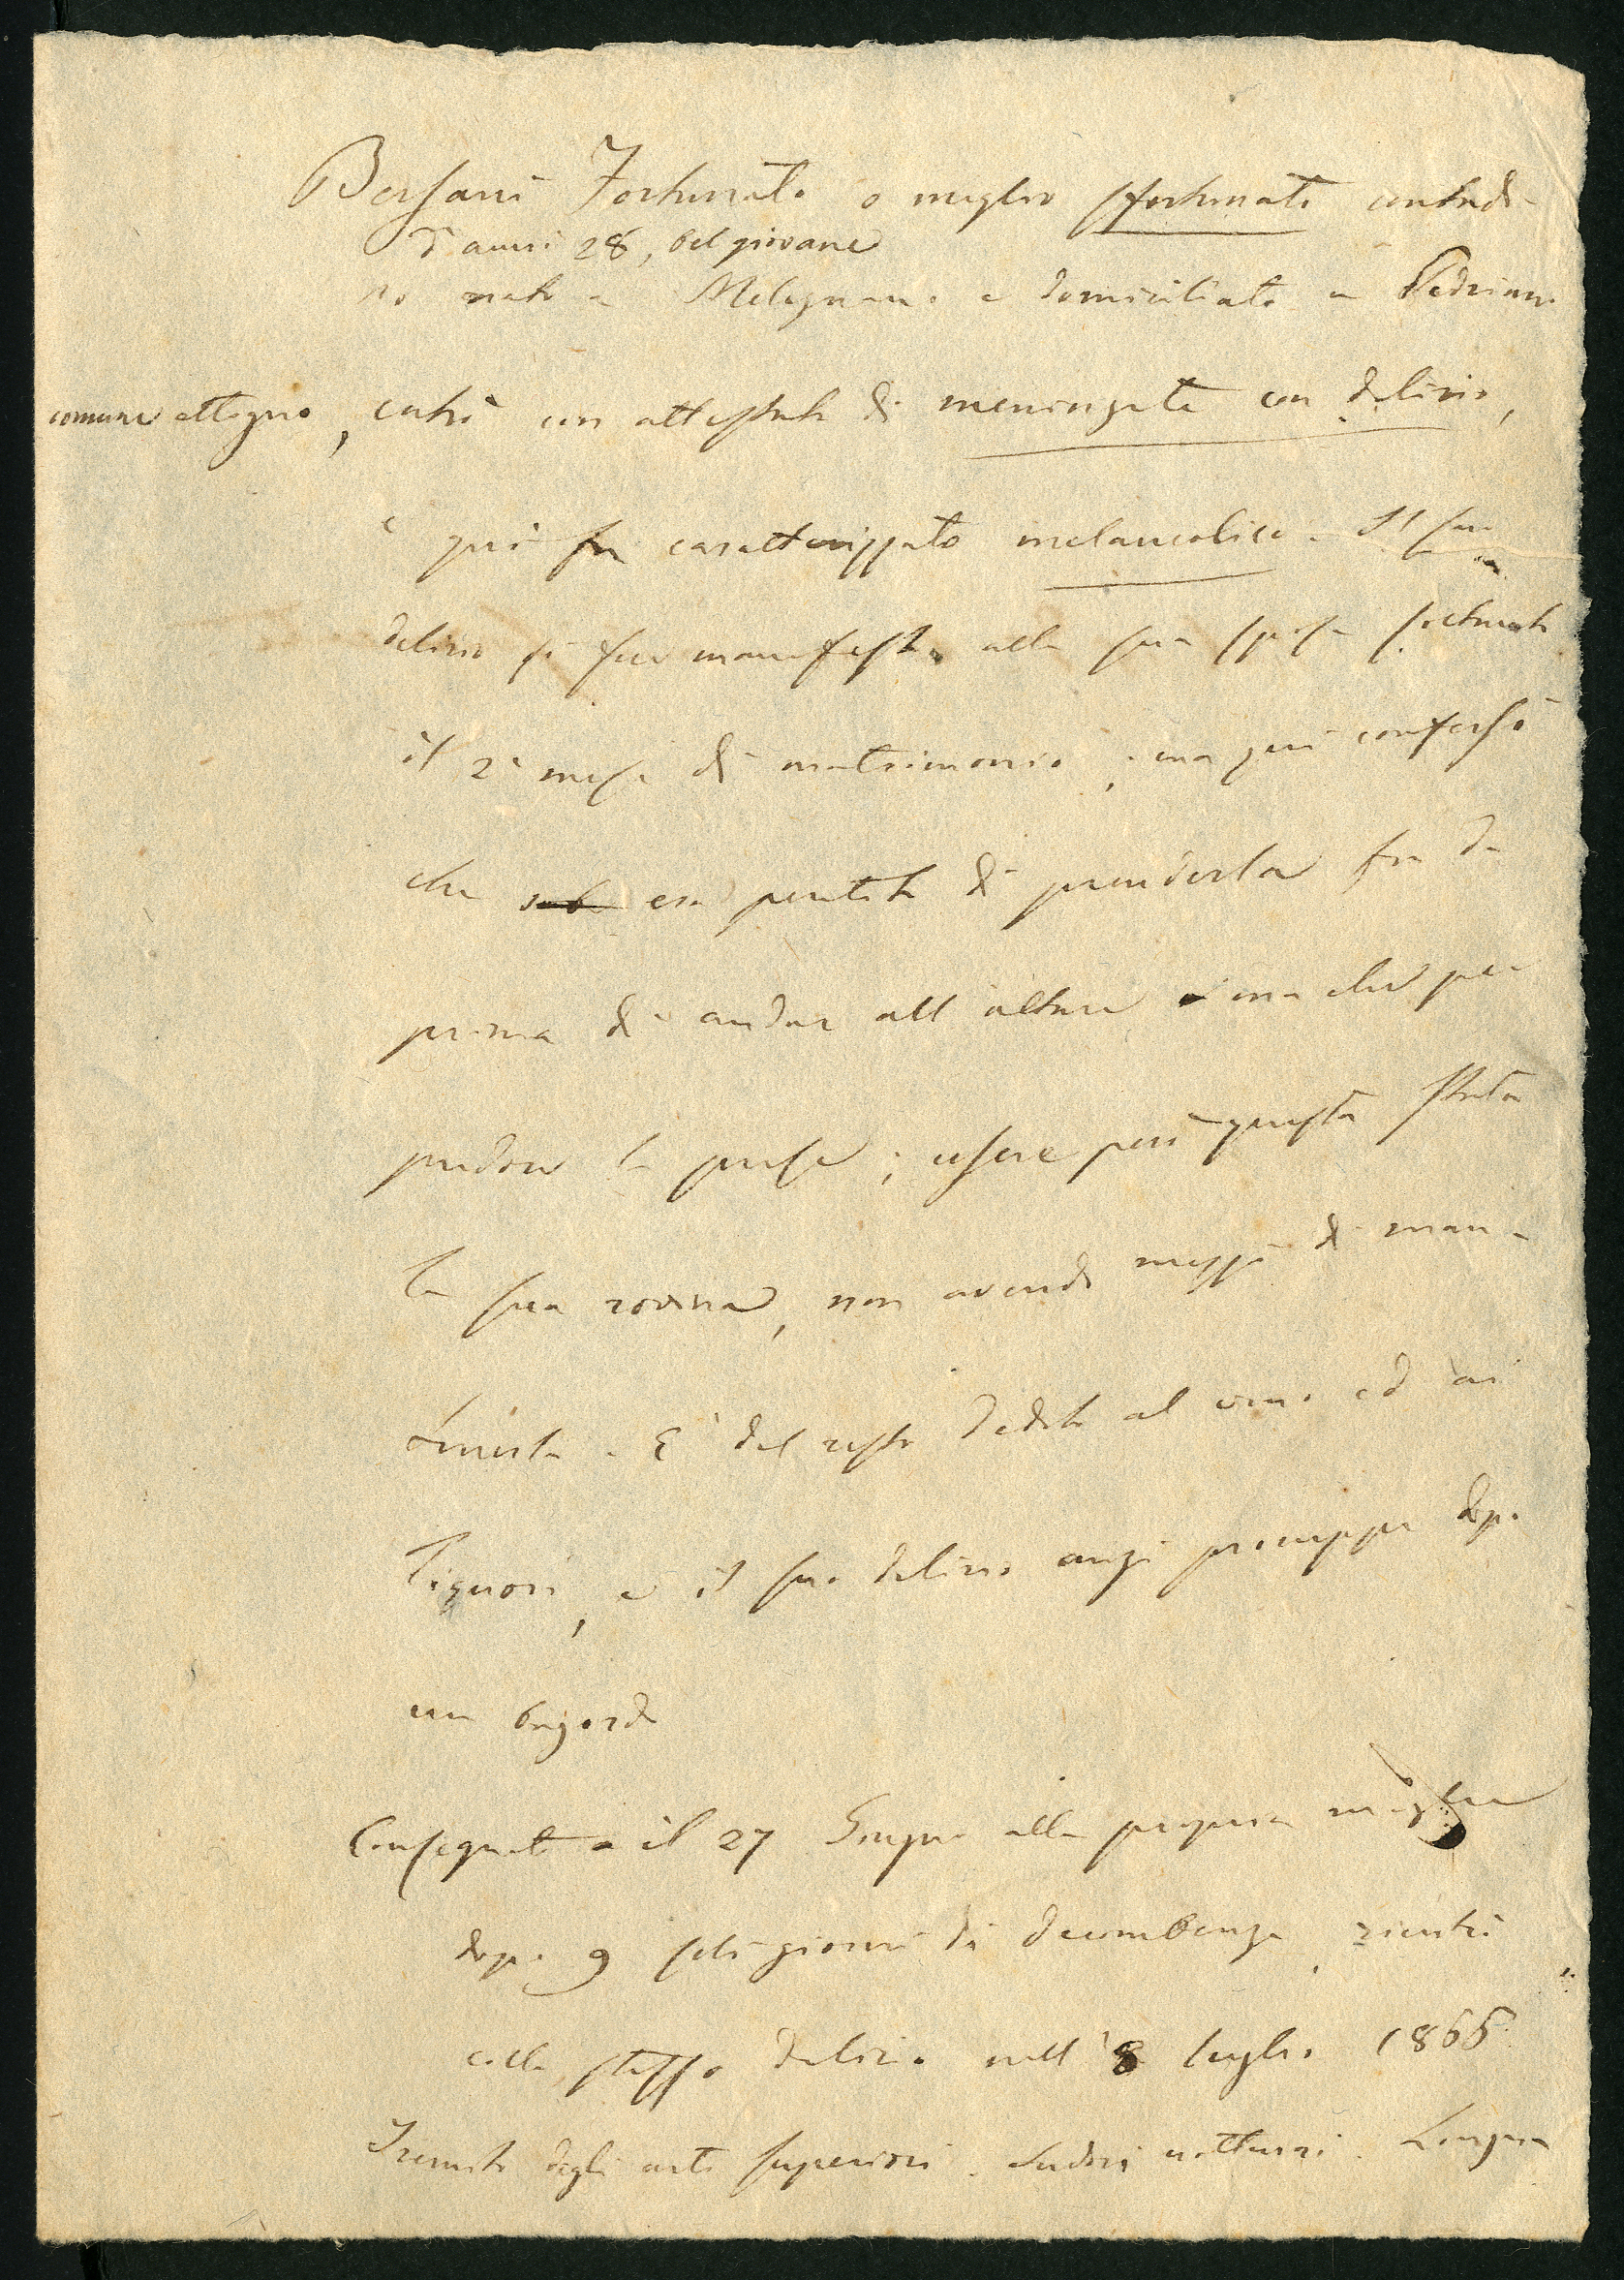 Bersani Fortunato o meglio sfortunato contadi-
d'anni 28, bel giovane
no nato a Melegnano e domiciliato a Pedriano
comune attiguo, entrò con attestato di meningite con delirio,
e qui fu caratterizzato melancolico. Il suo
delirio si fece manifesto alla sua sposa soltanto
il 2° mese di matrimonio; ma qui confessò
che era pentito di prenderla fin da
prima di andar all'altare e ma che per
pudore la prese; essere però questa stata
la sua rovina, non avendo mezzi di man-
tenerla. È del resto dedito al vino ed ai
liquori, e il suo delirio anzi proruppe dopo
un bagordo
Consegnato il 27 Giugno alla propria moglie
dopo 9 soli giorni di decombenza, rientrò
collo stesso delirio nell'8 luglio 1865
Tremito degli arti superiori. Sudori notturni. Lingua